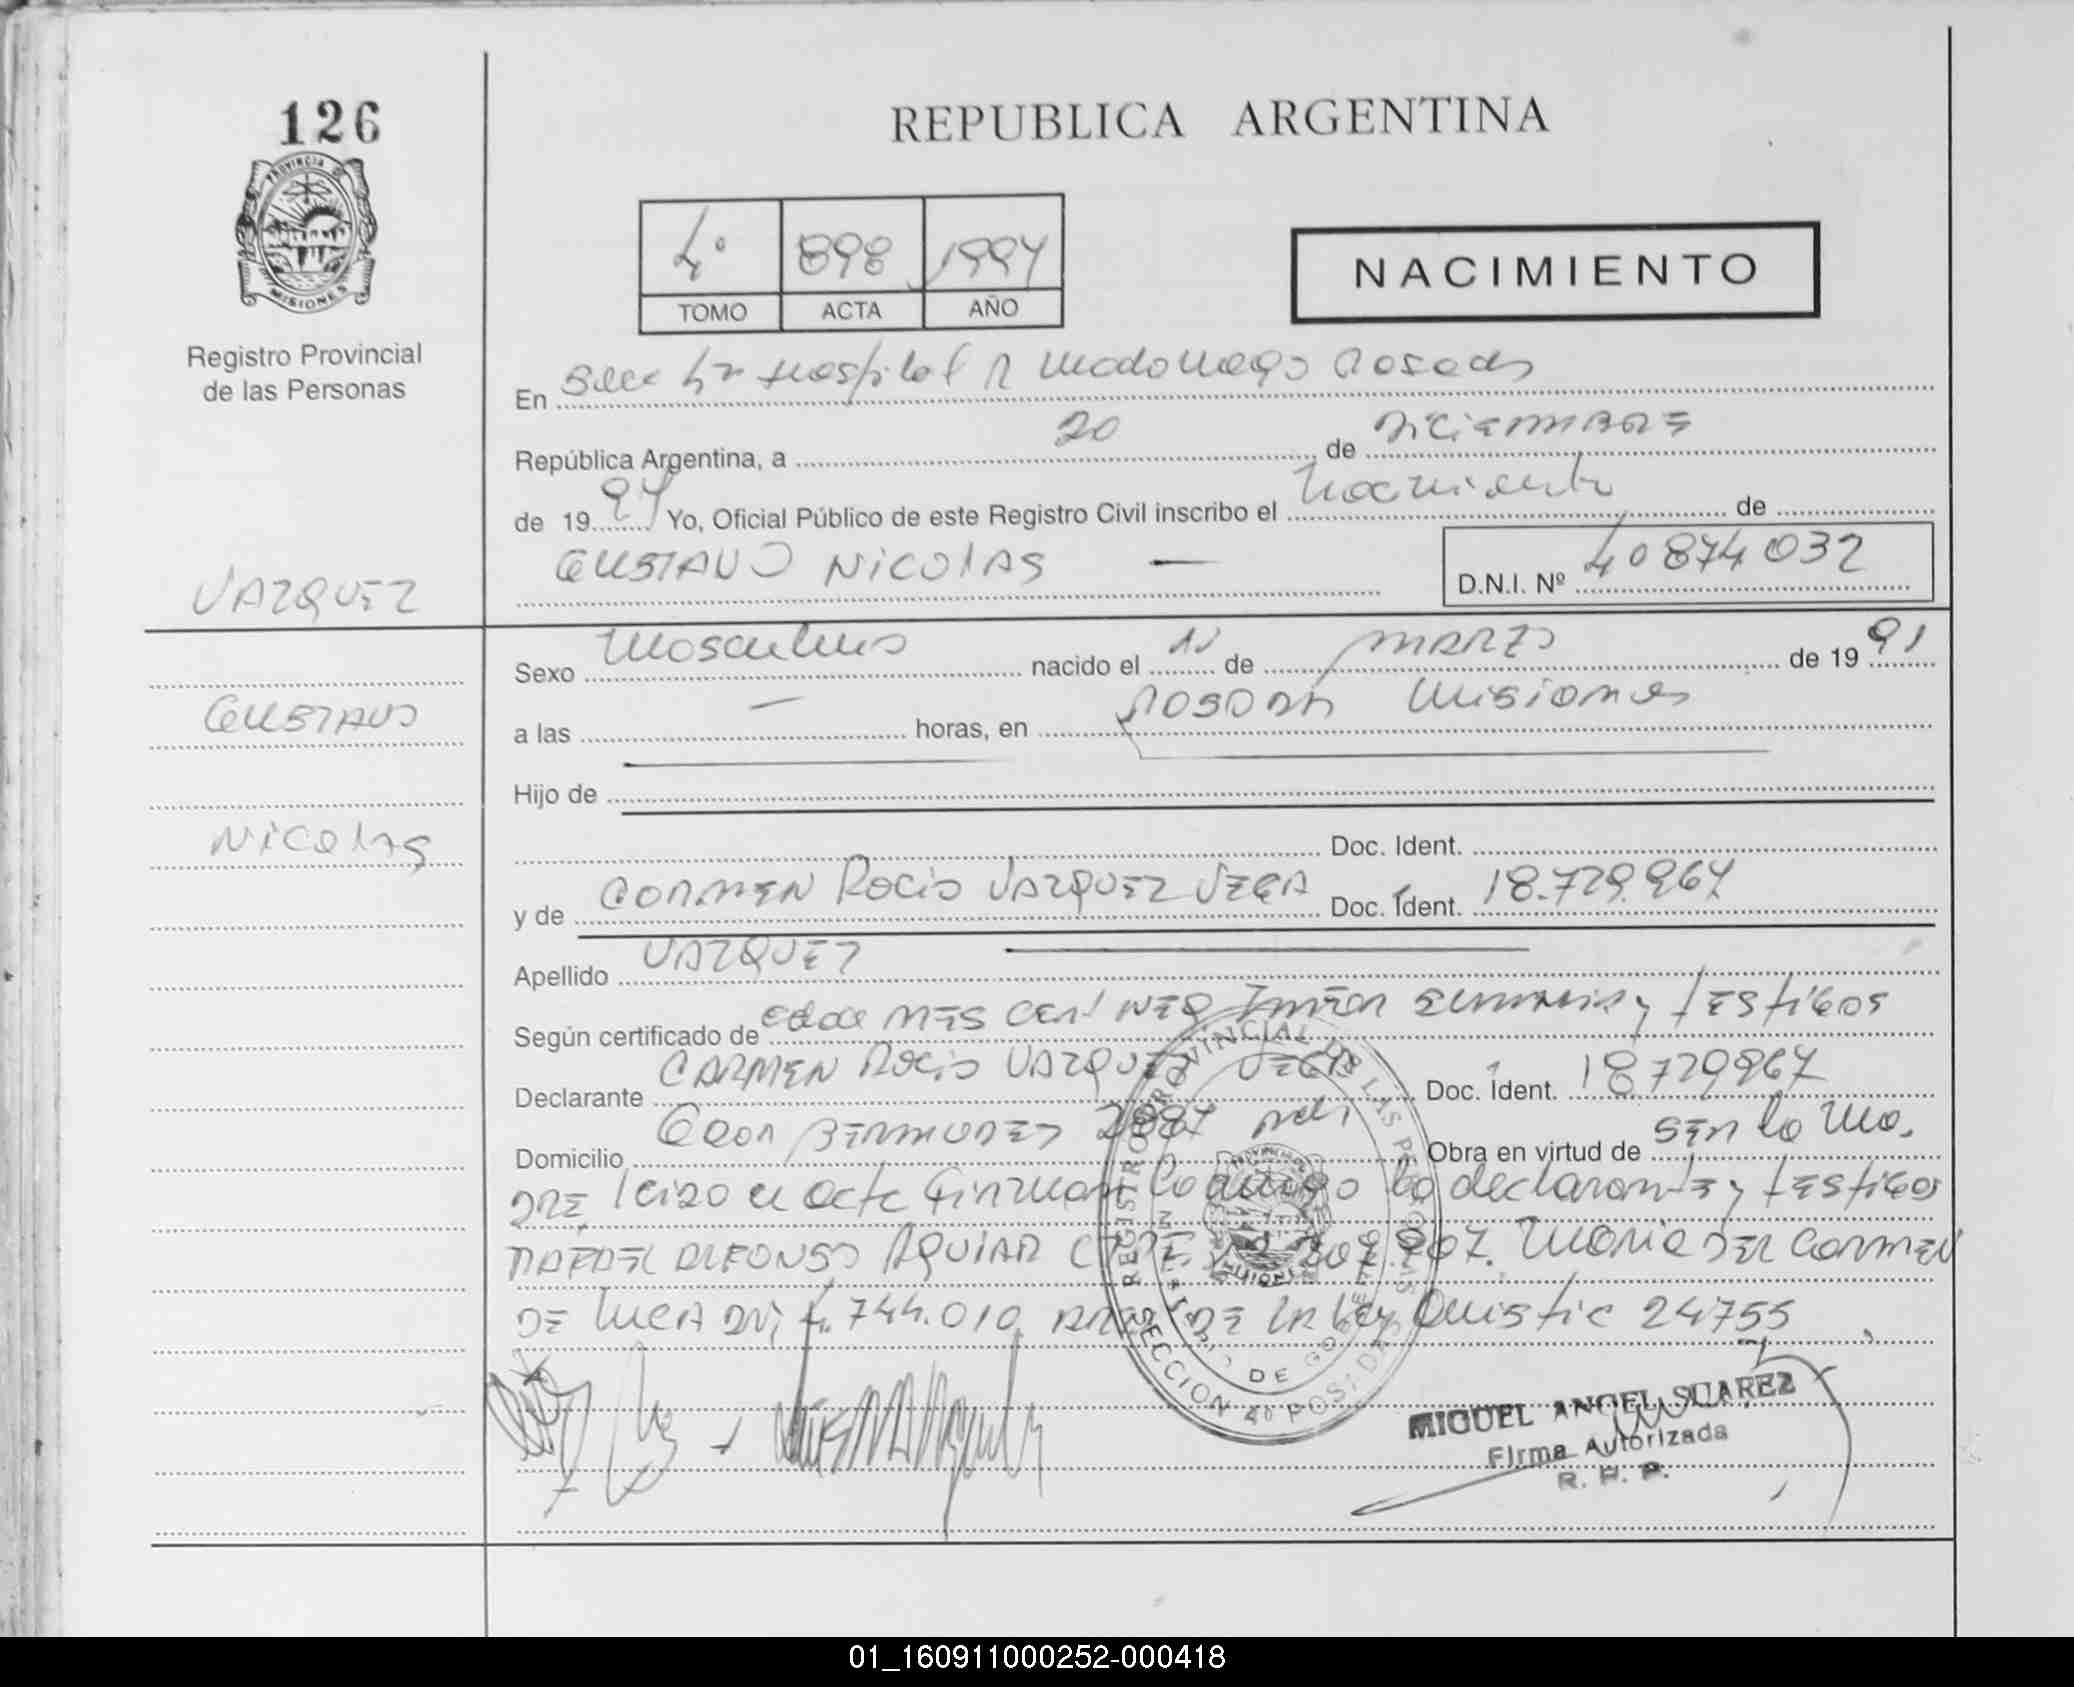 126
REPUBLICA ARGENTINA
PROVINCIA DE
MISIONES
4° 898 1997
TOMO ACTA AÑO
NACIMIENTO
Registro Provincial
de las Personas
En Secc 4ta Hospital R Madariaga Posadas
República Argentina, a 20 de DICIEMBRE
de 1997 Yo, Oficial Público de este Registro Civil inscribo el Nacimiento de
GUSTAVO NICOLAS —
D.N.I. Nº 40874032
VAZQUEZ
GUSTAVO
NICOLAS
Sexo Masculino nacido el de MARZO de 1991
a las — horas, en POSADAS Misiones
Hijo de
Doc. Ident.
y de CARMEN ROCIO VAZQUEZ VEGA Doc. Ident. 18.729.967
Apellido VAZQUEZ
Según certificado de y TESTIGOS
Declarante CARMEN ROCIO VAZQUEZ VEGA Doc. Ident. 18729967
Domicilio BERMUDEZ Obra en virtud de SER la MA-
DRE leida el acta firman Conmigo la declarante y TESTIGOS
RAFAEL ALFONSO AQUIAR Maria DEL CARMEN
DE LUCA DNI 744.010 DE LA Ley 24755
REGISTRO PROVINCIAL DE LAS PERSONAS
SECCION 4º POSADAS
MIGUEL ANGEL SUAREZ
Firma Autorizada
R. P. P.
01_160911000252-000418